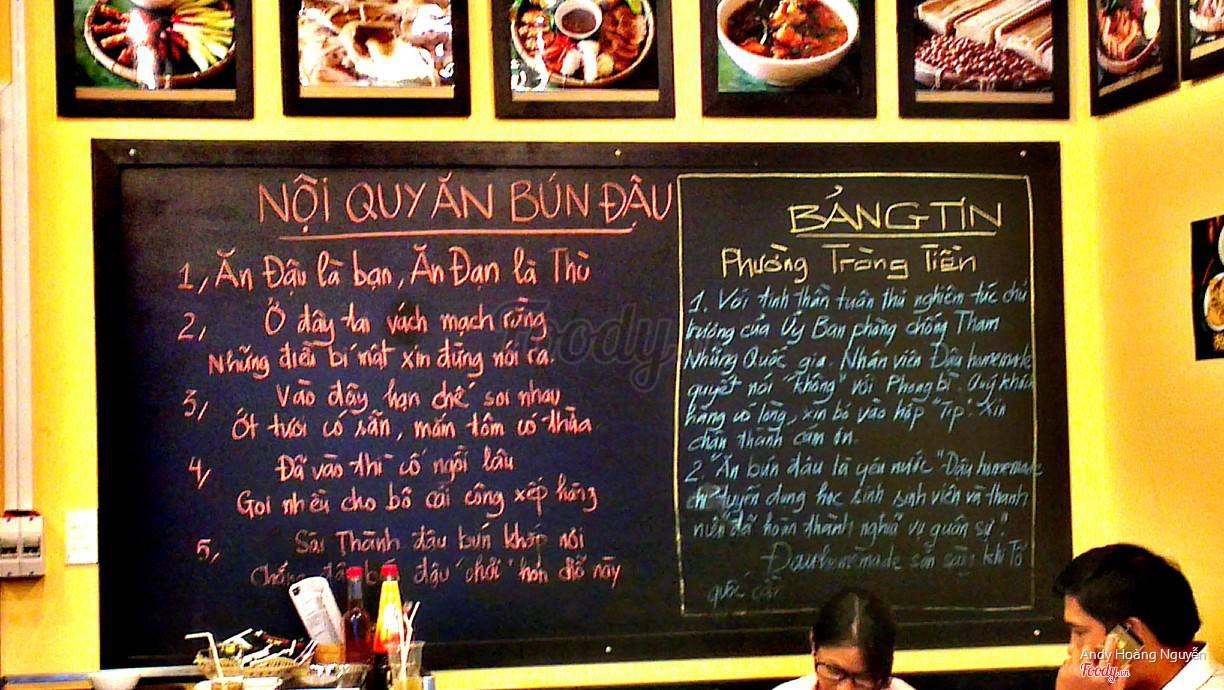 NỘI QUY ĂN BÚN ĐẬU
1, Ăn Đậu là bạn, Ăn Đạn là Thù
2, Ở đây tai vách mạch rừng
Những điều bí mật xin đừng nói ra.
3, Vào đây hạn chế soi nhau
Ớt tươi có sẵn, mắm tôm có thừa
4, Đã vào thì cố ngồi lâu
Gọi nhiều cho bõ cái công xếp hàng
5, Sài Thành đậu bún khắp nơi
Chẳng đâu bún đậu "chơi" hơn chỗ này
BẢNG TIN
Phường Tràng Tiền
1. Với tinh thần tuân thủ nghiêm túc chủ
trương của Ủy Ban phòng chống Tham
Nhũng Quốc gia. Nhân viên Đậu homemade
quyết nói "không" với Phong bì. Quý khách
hàng có lòng, xin bỏ vào hộp "Tip". Xin
chân thành cám ơn.
2. "Ăn bún đậu là yêu nước" Đậu homemade
chỉ tuyển dụng học sinh sinh viên và thanh
niên đã hoàn thành nghĩa vụ quân sự".
Đậu homemade sẵn sàng khi Tổ
quốc cần
Foody
Andy Hoàng Nguyễn
Foody.vn